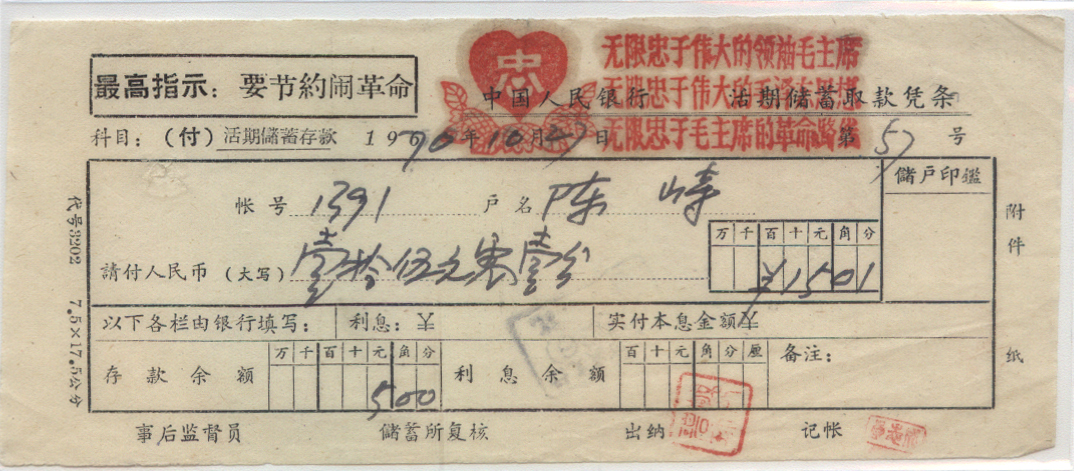 忠
无限忠于伟大的领袖毛主席
无限忠于伟大的毛泽东思想
无限忠于毛主席的革命路线
最高指示：要节約闹革命
中国人民银行 活期储蓄取款凭条
科目：（付）活期儲蓄存款 1970年10月27日 第57号
帐号 1391 户名 陈
儲户印鑑
請付人民币（大写）壹拾伍元零壹分
万千百十元角分
¥1501
以下各栏由银行填写： 利息：¥ 实付本息金額¥
存款余额 万千百十元角分 500 利息余額 百十元角分厘 备注：
事后监督员 儲蓄所复核 出纳 记帐
代号3202 7.5×17.5公分
附件 纸